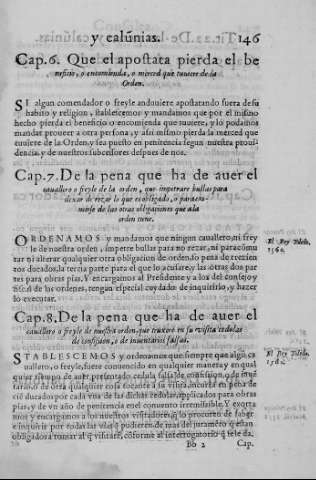 y calũnias. 146
Cap. 6. Que el apostata pierda el be
neficio, o encomienda, o merced que tuuiere de la
Orden.
SI algun comendador o freyle anduuiere apostatando fuera de su
habito y religion, establescemos y mandamos que por el mismo
hecho pierda el beneficio o encomienda que tuuiere, y lo podamos
mandar proueer a otra persona, y assi mismo pierda la merced que
tuuiere de la Orden, y sea puesto en penitencia segun nuestra proui-
dencia, y de nuestros subcessores despues de nos.
Cap. 7. De la pena que ha de auer el
cauallero o freyle de la orden, que impetrare bullas para
dexar de rezar lo que es obligado, o para comu-
de las otras obligaciones que a la
orden tiene.
ORDENAMOS y mandamos que ningun cauallero, ni frey
le de nuestra orden, impetre bullas para no rezar, ni para comu
tar ni alterar qualquier otra obligacion de orden, so pena de trezien
tos ducados, la tercia parte para el que lo acusare, y las otras dos par
tes para obras pias. Y encargamos al Presidente y a los del consejo y
de las ordenes, tengan especial cuydado de inquirirlo, y hazer
lo executar.
El Rey
1560.
Cap. 8. De la pena que ha de auer el
cauallero o freyle de nuestra orden, que truxere en su visita cedulas
de confession, o de inuentarios falsas.
STABLESCEMOS y ordenamos que siempre que algũ ca
uallero, o freyle, fuere conuencido en qualquier manera y en qual
quier tiempo de auer presentado cedula falsa de confession, o de inuẽ
tario, o de otra qualquier cosa tocante a su visita, incurra en pena de
ducados por cada vna de las dichas cedulas, applicados para obras
pias, y de vn año de penitencia en el conuento irremissible. Y exorta
mos y encargamos a los nuestros visitadores, q̃ lo procuren de saber
e inquirir por todas las vias q̃ pudieren, de mas del juramẽto q̃ estan
obligados a tomar al q̃ visitarẽ, conforme al interrogatorio q̃ se le da.
El Rey
Bb 2 Cap.